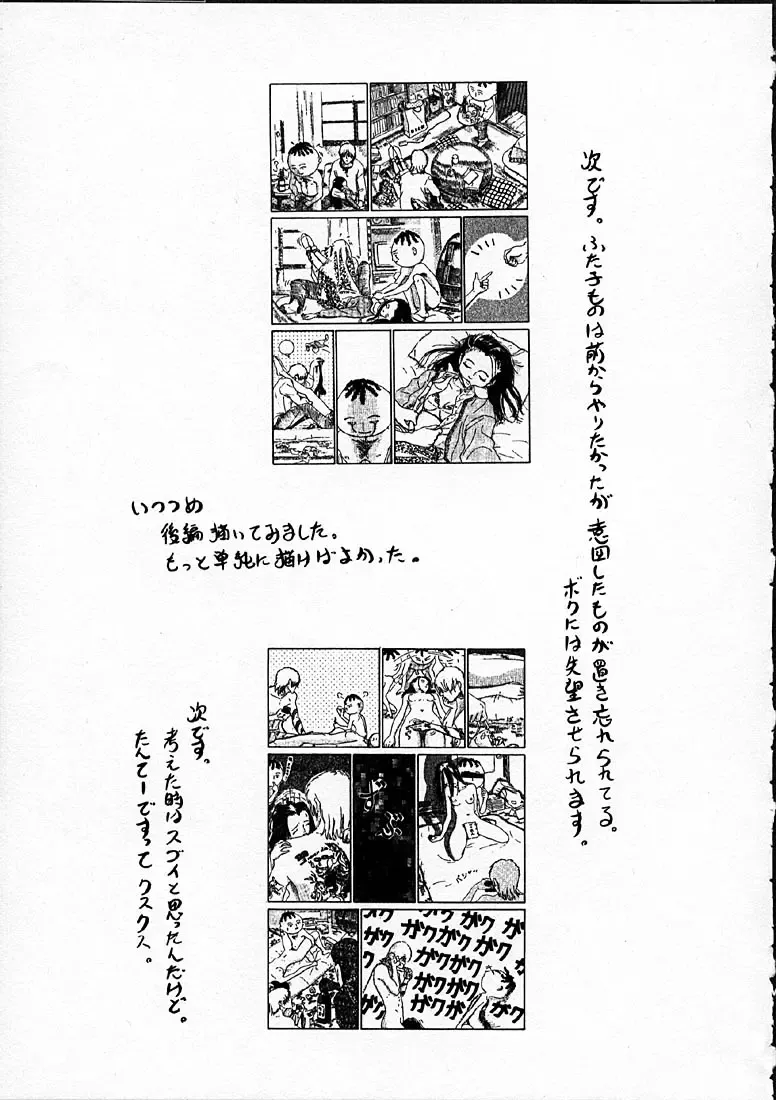 次です。ふた子ものは前からやりたかったが意図したものが置き忘れられてる。
ボクには失望させられます。
いつつめ
後編描いてみました。
もっと単純に描けばよかった。
次です。
考えた時はスゴイと思ったんだけど。
たんてーですってクスクス。
ガクガクガクガク
ガクガクガクガク
ガクガクガク
ガクガクガク